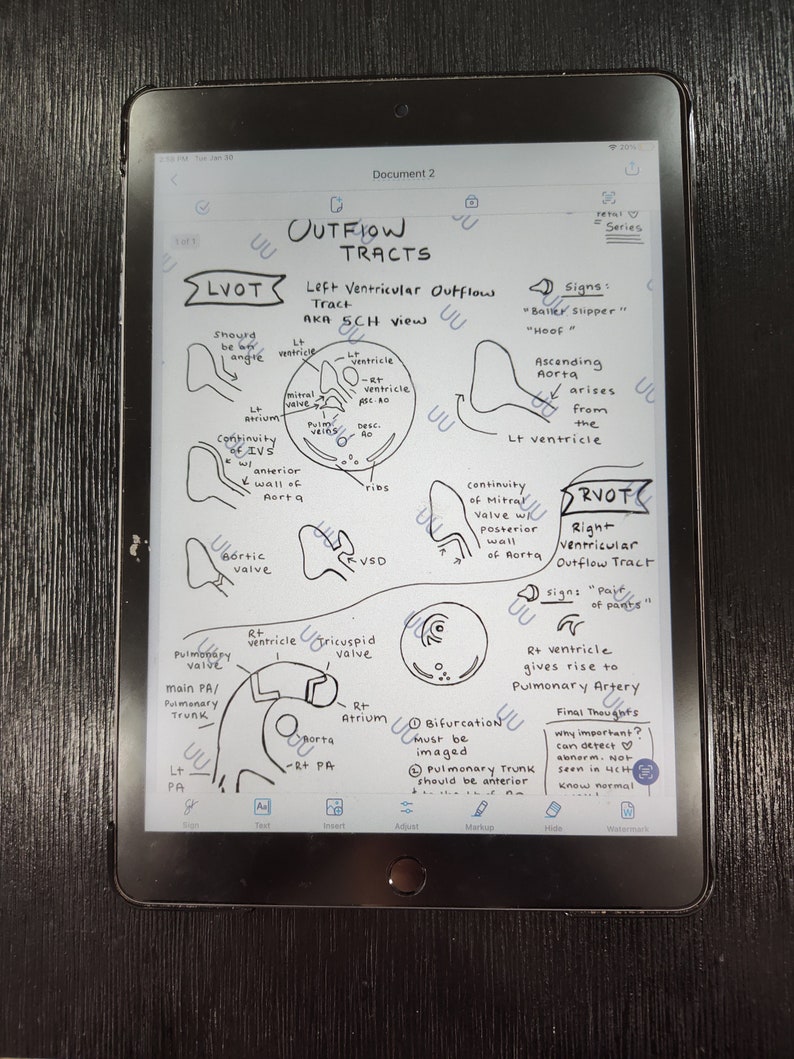 2:58 PM Tue Jan 30
20%
Document 2
1 of 1
OUTFLOW
TRACTS
Fetal ♡
Series
LVOT
Left Ventricular Outflow
Tract
AKA 5CH view
Signs:
"Ballet Slipper"
"Hoof"
Should
be an
angle
Lt
ventricle
Lt
ventricle
Rt
ventricle
mitral
valve
Asc. AO
Lt
Atrium
Pulm.
veins
Desc.
AO
ribs
Ascending
Aorta
arises
from
the
Lt ventricle
Continuity
of IVS
w/
anterior
wall of
Aorta
continuity
of Mitral
valve w/
posterior
wall
of Aorta
Aortic
valve
VSD
RVOT
Right
Ventricular
Outflow Tract
sign: "Pair
of pants"
Rt ventricle
gives rise to
Pulmonary Artery
Rt
ventricle
Tricuspid
valve
Pulmonary
valve
main PA/
Pulmonary
Trunk
Rt
Atrium
Aorta
Rt PA
Lt
PA
① Bifurcation
must be
imaged
② Pulmonary Trunk
should be anterior
Final Thoughts
why important?
can detect ♡
abnorm. Not
seen in 4CH
Know normal
Sign
Text
Insert
Adjust
Markup
Hide
Watermark